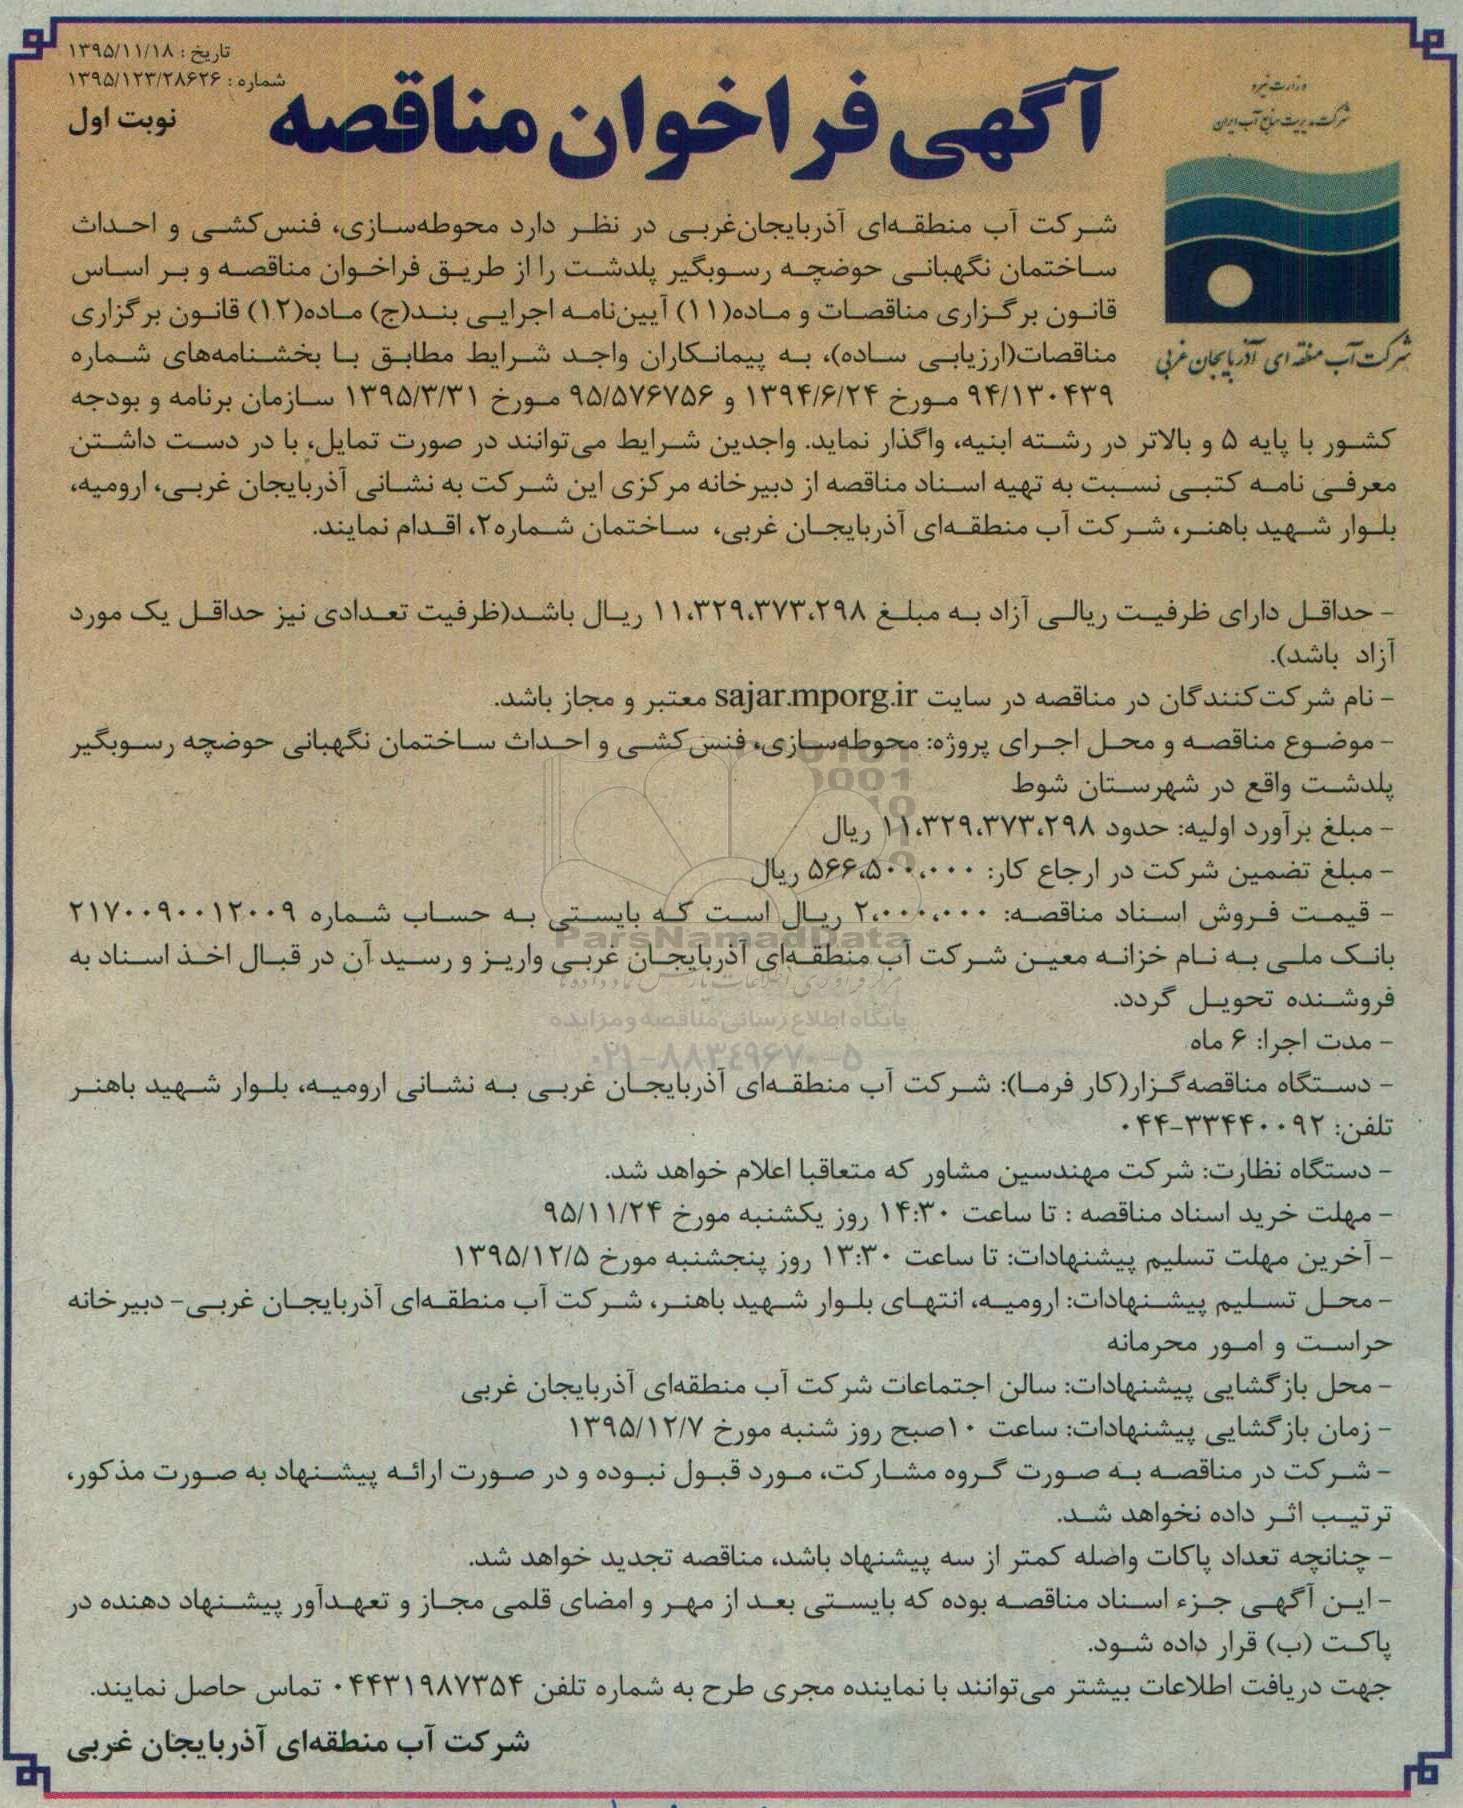 تاریخ : ۱۳۹۵/۱۱/۱۸
شماره : ۱۳۹۵/۱۲۳/۲۸۶۲۶
نوبت اول
وزارت نیرو
شرکت مدیریت منابع آب ایران
شرکت آب منطقه ای آذربایجان غربی
آگهی فراخوان مناقصه
شرکت آب منطقه‌ای آذربایجان‌غربی در نظر دارد محوطه‌سازی، فنس‌کشی و احداث
ساختمان نگهبانی حوضچه رسوبگیر پلدشت را از طریق فراخوان مناقصه و بر اساس
قانون برگزاری مناقصات و ماده(۱۱) آیین‌نامه اجرایی بند(ج) ماده(۱۲) قانون برگزاری
مناقصات(ارزیابی ساده)، به پیمانکاران واجد شرایط مطابق با بخشنامه‌های شماره
۹۴/۱۳۰۴۳۹ مورخ ۱۳۹۴/۶/۲۴ و ۹۵/۵۷۶۷۵۶ مورخ ۱۳۹۵/۳/۳۱ سازمان برنامه و بودجه
کشور با پایه ۵ و بالاتر در رشته ابنیه، واگذار نماید. واجدین شرایط می‌توانند در صورت تمایل، با در دست داشتن
معرفی نامه کتبی نسبت به تهیه اسناد مناقصه از دبیرخانه مرکزی این شرکت به نشانی آذربایجان غربی، ارومیه،
بلوار شهید باهنر، شرکت آب منطقه‌ای آذربایجان غربی، ساختمان شماره۲، اقدام نمایند.
- حداقل دارای ظرفیت ریالی آزاد به مبلغ ۱۱،۳۲۹،۳۷۳،۲۹۸ ریال باشد(ظرفیت تعدادی نیز حداقل یک مورد
آزاد باشد).
- نام شرکت‌کنندگان در مناقصه در سایت sajar.mporg.ir معتبر و مجاز باشد.
- موضوع مناقصه و محل اجرای پروژه: محوطه‌سازی، فنس‌کشی و احداث ساختمان نگهبانی حوضچه رسوبگیر
پلدشت واقع در شهرستان شوط
- مبلغ برآورد اولیه: حدود ۱۱،۳۲۹،۳۷۳،۲۹۸ ریال
- مبلغ تضمین شرکت در ارجاع کار: ۵۶۶،۵۰۰،۰۰۰ ریال
- قیمت فروش اسناد مناقصه: ۲،۰۰۰،۰۰۰ ریال است که بایستی به حساب شماره ۲۱۷۰۰۹۰۰۱۲۰۰۹
بانک ملی به نام خزانه معین شرکت آب منطقه‌ای آذربایجان غربی واریز و رسید آن در قبال اخذ اسناد به
فروشنده تحویل گردد.
- مدت اجرا: ۶ ماه
- دستگاه مناقصه‌گزار(کار فرما): شرکت آب منطقه‌ای آذربایجان غربی به نشانی ارومیه، بلوار شهید باهنر
تلفن: ۳۳۴۴۰۰۹۲-۰۴۴
- دستگاه نظارت: شرکت مهندسین مشاور که متعاقبا اعلام خواهد شد.
- مهلت خرید اسناد مناقصه : تا ساعت ۱۴:۳۰ روز یکشنبه مورخ ۹۵/۱۱/۲۴
- آخرین مهلت تسلیم پیشنهادات: تا ساعت ۱۳:۳۰ روز پنجشنبه مورخ ۱۳۹۵/۱۲/۵
- محل تسلیم پیشنهادات: ارومیه، انتهای بلوار شهید باهنر، شرکت آب منطقه‌ای آذربایجان غربی- دبیرخانه
حراست و امور محرمانه
- محل بازگشایی پیشنهادات: سالن اجتماعات شرکت آب منطقه‌ای آذربایجان غربی
- زمان بازگشایی پیشنهادات: ساعت ۱۰صبح روز شنبه مورخ ۱۳۹۵/۱۲/۷
- شرکت در مناقصه به صورت گروه مشارکت، مورد قبول نبوده و در صورت ارائه پیشنهاد به صورت مذکور،
ترتیب اثر داده نخواهد شد.
- چنانچه تعداد پاکات واصله کمتر از سه پیشنهاد باشد، مناقصه تجدید خواهد شد.
- این آگهی جزء اسناد مناقصه بوده که بایستی بعد از مهر و امضای قلمی مجاز و تعهدآور پیشنهاد دهنده در
پاکت (ب) قرار داده شود.
جهت دریافت اطلاعات بیشتر می‌توانند با نماینده مجری طرح به شماره تلفن ۰۴۴۳۱۹۸۷۳۵۴ تماس حاصل نمایند.
شرکت آب منطقه‌ای آذربایجان غربی
ParsNamadData
پایگاه اطلاع رسانی مناقصه و مزایده
۰۲۱-۸۸۳۴۹۶۷۰-۵